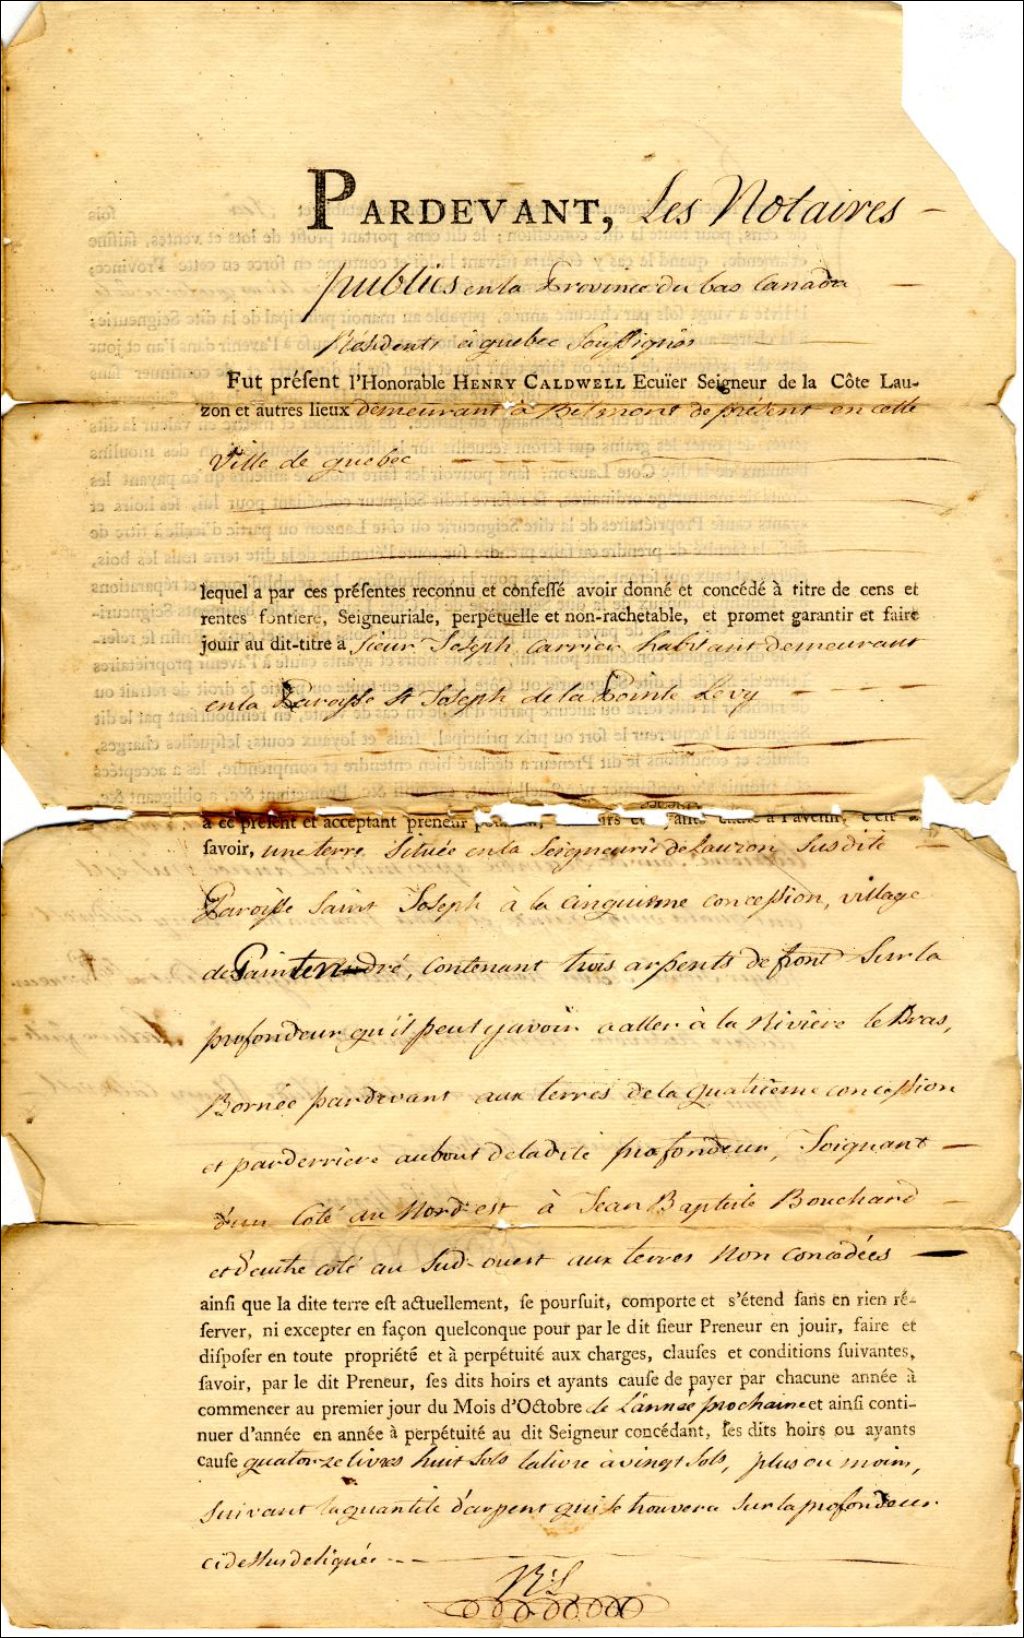 PARDEVANT, Les Notaires
publics en la Province du bas Canada
Résidents à quebec Soussignés
Fut préſent l'Honorable HENRY CALDWELL Ecuïer Seigneur de la Côte Lau-
zon et autres lieux demeurant à Belmont de présent en cette
Ville de quebec
lequel a par ces préſentes reconnu et confeſſé avoir donné et concédé à titre de cens et
rentes fonciere, Seigneuriale, perpétuelle et non-rachetable, et promet garantir et faire
jouir au dit-titre à Sieur Joseph Carrier habitant demeurant
en la Paroisse St Joseph de la Pointe Levy
à ce préſent et acceptant preneur à l'avenir, c'eſt à
ſavoir, une terre Située en la Seigneurie de Lauzon Susdite
Paroisse Saint Joseph à la cinquieme concession, village
de Paintendré, contenant trois arpents de front Sur la
profondeur qu'il peut y avoir a aller à la Rivière le Bras,
Bornée pardevant aux terres de la quatrième concession
et parderriere au bout de ladite profondeur, Joignant
d'un Coté au Nord est à Jean Baptiste Bouchard
et d'autre coté au Sud-ouest aux terres Non concédées
ainſi que la dite terre eſt actuellement, ſe pourſuit, comporte et s'étend ſans en rien ré-
ſerver, ni excepter en façon quelconque pour par le dit ſieur Preneur en jouir, faire et
diſpoſer en toute propriété et à perpétuité aux charges, clauſes et conditions ſuivantes,
ſavoir, par le dit Preneur, ſes dits hoirs et ayants cauſe de payer par chacune année à
commencer au premier jour du Mois d'Octobre de L'année prochaine et ainſi conti-
nuer d'année en année à perpétuité au dit Seigneur concédant, ſes dits hoirs ou ayants
cauſe quatorze livres huit Sols la livre à vingt Sols, plus ou moins,
Suivant la quantité d'arpent qui Se trouvera Sur la profondeur
ci dessus